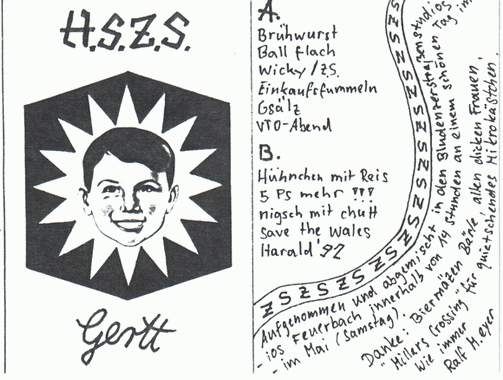 H.S.Z.S.
Gertt
A.
Brühwurst
Ball flach
Wicky/ZS.
Einkaufsfummeln
Gsälz
VTO-Abend
B.
Hühnchen mit Reis
5 Ps mehr !!!
nigsch mit chutt
save the Wales
Harald '92
ZS ZS ZS ZS ZS ZS ZS ZS ZS
Aufgenommen und abgemischt in den Bludenzerstraßenstudios
-ios Feuerbach innerhalb von 14 Stunden an einem schönen Tag im
- im Mai (Samstag).
Danke: Biermözen Bänle, allen dicken Frauen,
"Millers Crossing" für quietschendes Mikrokästchen.
Wie immer
Ralf M. eyer